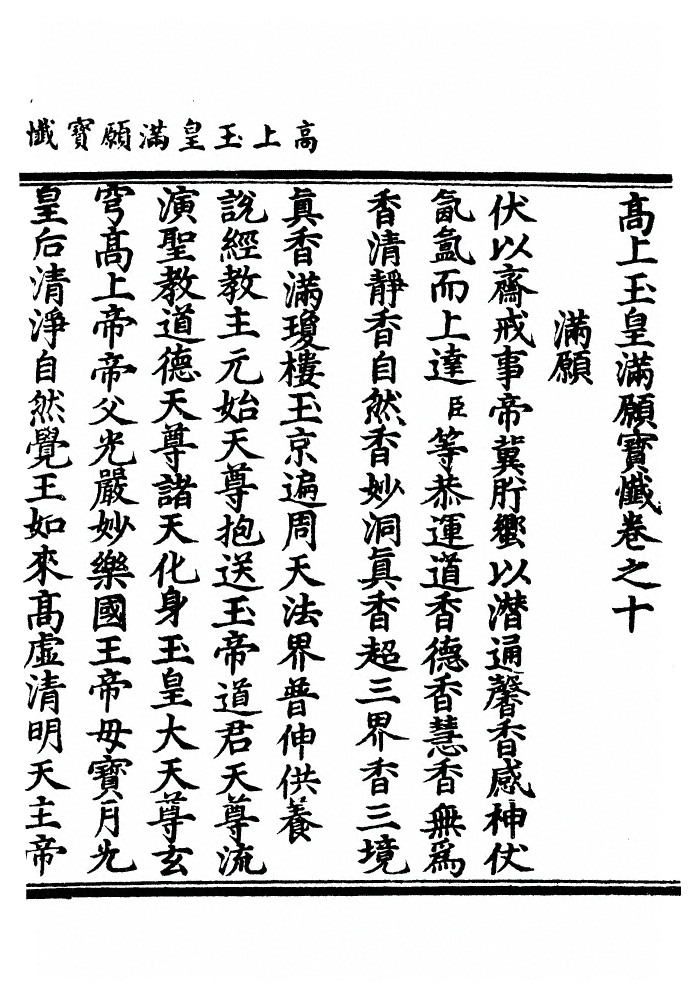 高上玉皇滿願寶懺
高上玉皇滿願寶懺卷之十
滿願
伏以齋戒事帝冀肸蠁以潛通馨香感神伏
氤氳而上達臣等恭運道香德香慧香無爲
香清靜香自然香妙洞眞香超三界香三境
眞香滿瓊樓玉京遍周天法界普伸供養
說經教主元始天尊抱送玉帝道君天尊流
演聖教道德天尊諸天化身玉皇大天尊玄
穹高上帝帝父光嚴妙樂國王帝母寶月光
皇后清淨自然覺王如來高虛清明天主帝